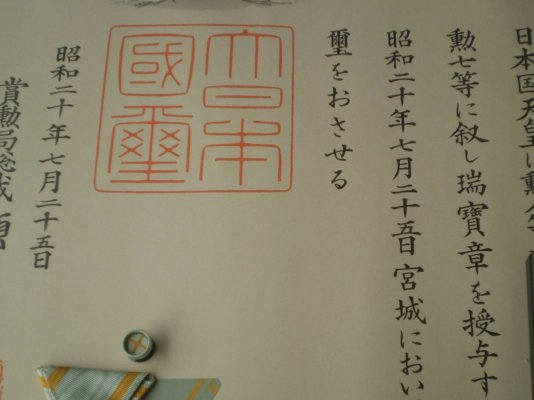 日本国天皇は
勲七等に叙し瑞寶章を授与す
昭和二十年七月二十五日宮城におい
璽をおさせる
大日本
國璽
昭和二十年七月二十五日
賞勲局総裁